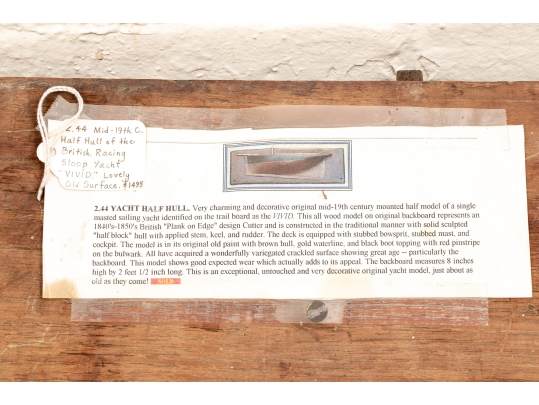 2.44 Mid-19th C.
Half Hull of the
British Racing
Sloop Yacht
"VIVID." Lovely
Old Surface. $1495
2.44 YACHT HALF HULL. Very charming and decorative original mid-19th century mounted half model of a single
masted sailing yacht identified on the trail board as the VIVID. This all wood model on original backboard represents an
1840's-1850's British "Plank on Edge" design Cutter and is constructed in the traditional manner with solid sculpted
"half block" hull with applied stem, keel, and rudder. The deck is equipped with stubbed bowsprit, stubbed mast, and
cockpit. The model is in its original old paint with brown hull, gold waterline, and black boot topping with red pinstripe
on the bulwark. All have acquired a wonderfully variegated crackled surface showing great age -- particularly the
backboard. This model shows good expected wear which actually adds to its appeal. The backboard measures 8 inches
high by 2 feet 1/2 inch long. This is an exceptional, untouched and very decorative original yacht model, just about as
old as they come! SOLD